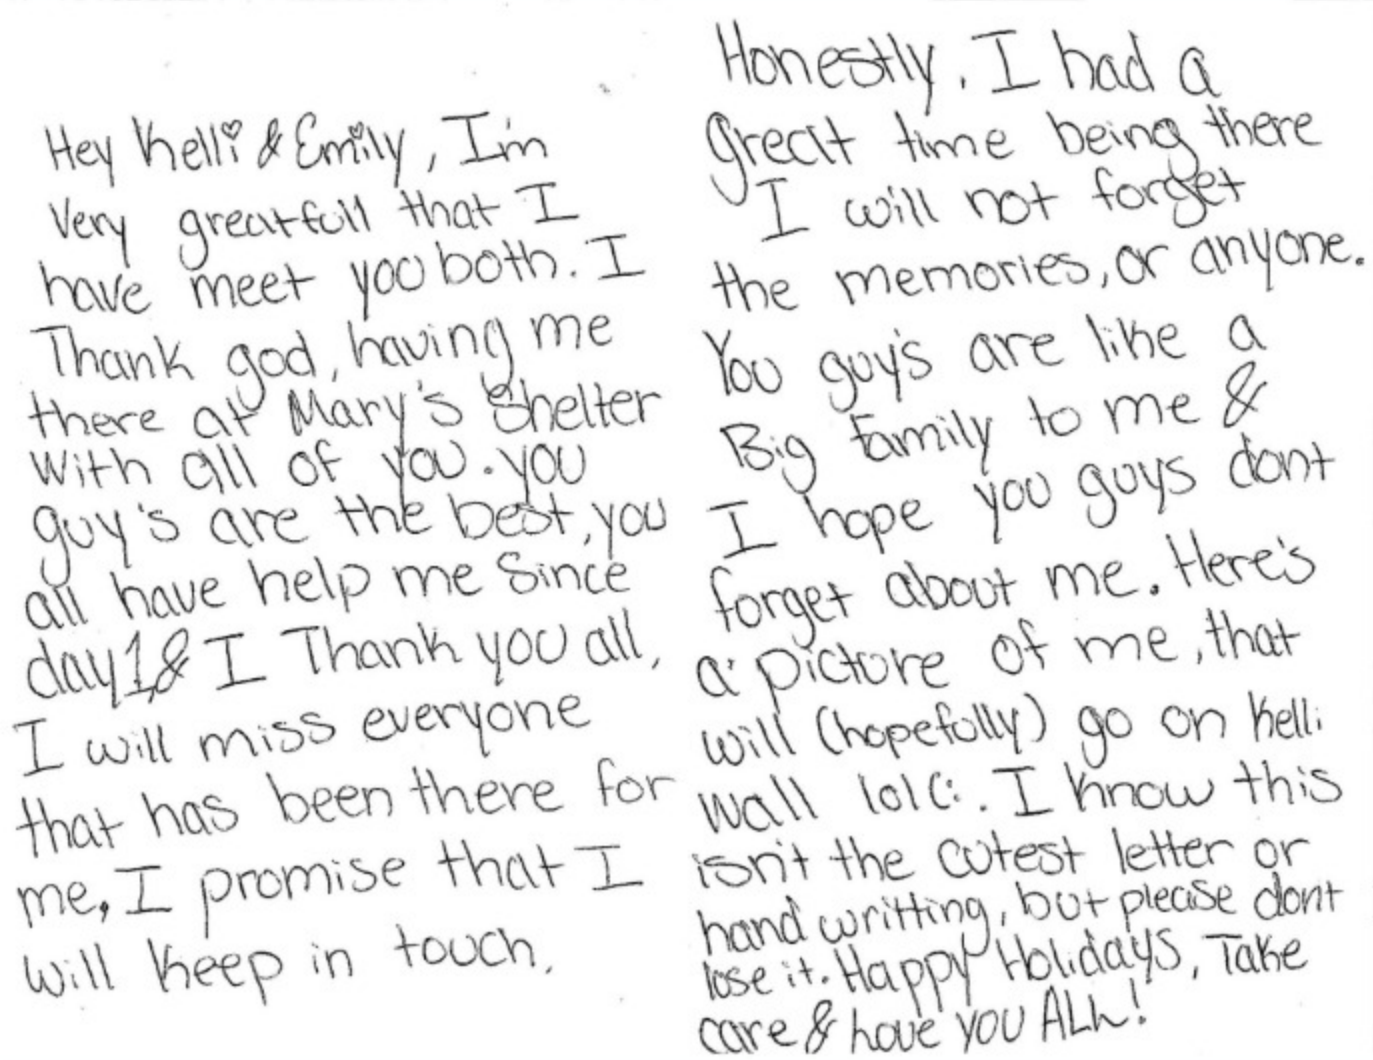 Hey Kelli & Emily, I'm
Very greatfull that I
have meet you both. I
Thank god, having me
there at Mary's Shelter
with all of you. you
guy's are the best, you
all have help me Since
day 1,& I Thank you all,
I will miss everyone
that has been there for
me, I promise that I
will keep in touch.
Honestly, I had a
great time being there
I will not forget
the memories, or anyone.
You guy's are like a
Big family to me &
I hope you guys dont
forget about me. Here's
a picture of me, that
will (hopefully) go on Kelli
wall lol (: . I know this
isn't the cutest letter or
hand writting, but please dont
lose it. Happy Holidays, Take
care & love you ALL!